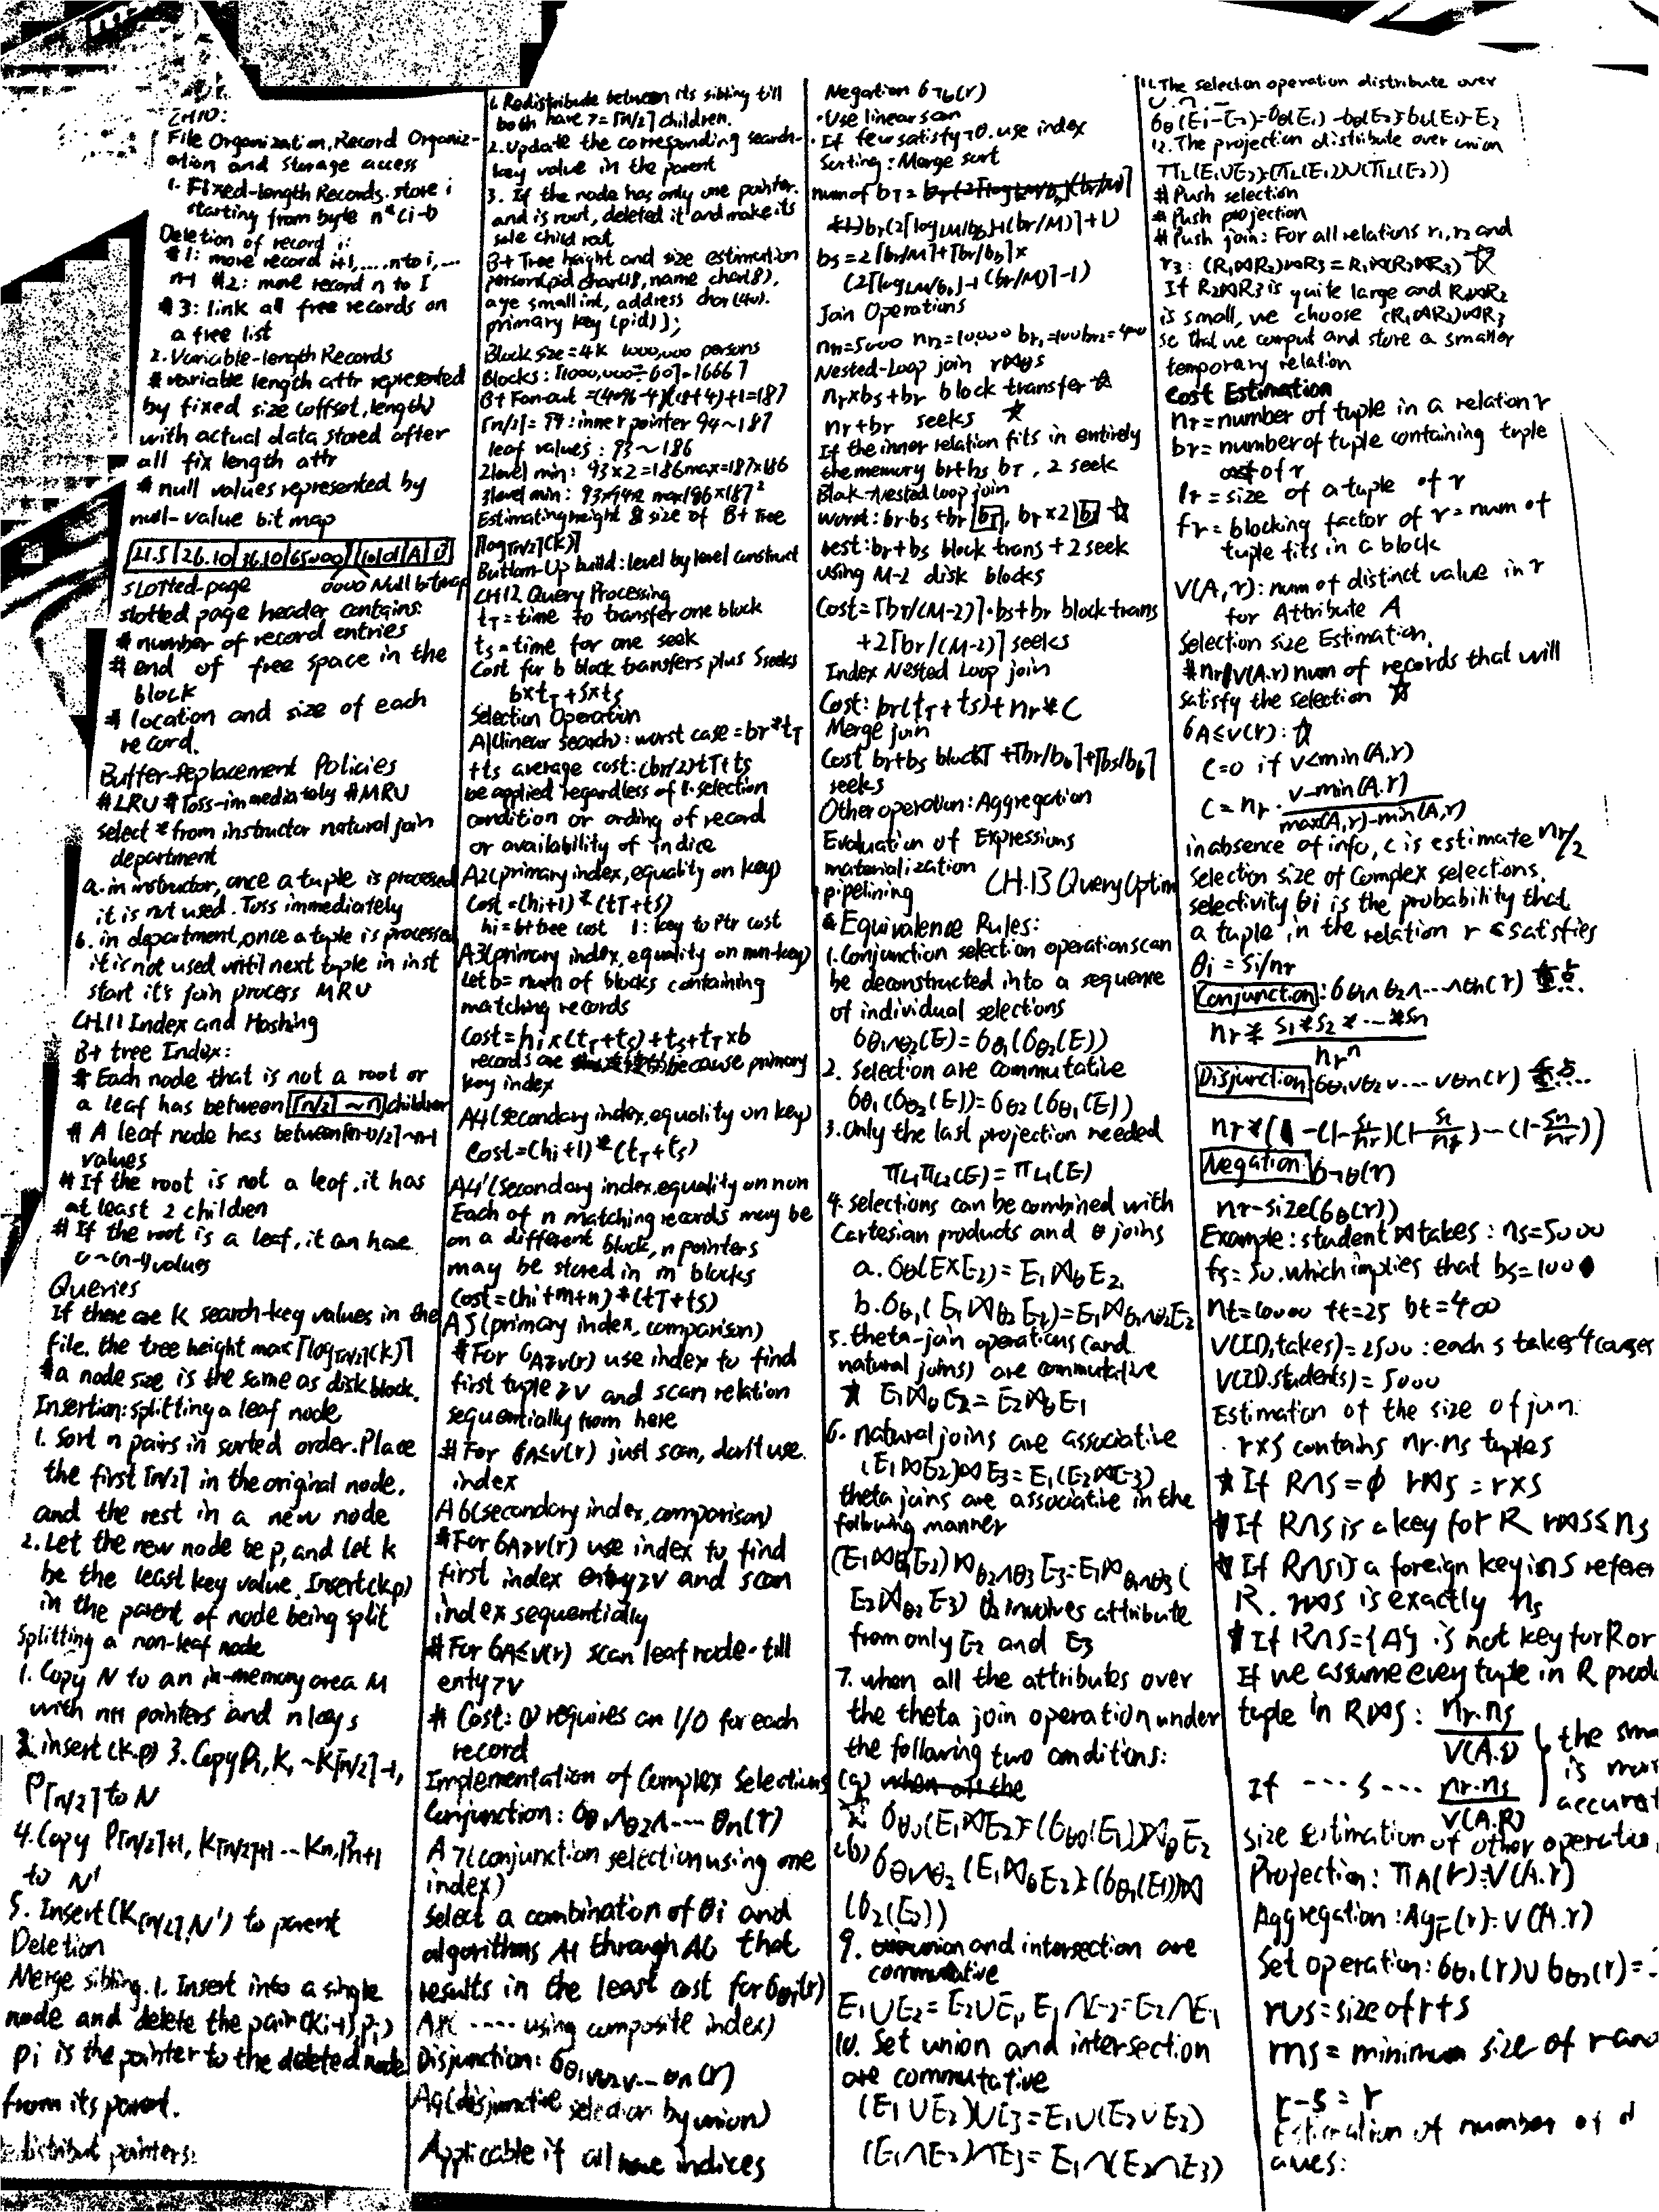 CH10:
File Organization, Record Organiz-
ation and storage access
1. Fixed-length Records. store i
starting from byte n*(i-1)
Deletion of record i:
#1: move record i+1, ....n to i, ...
n-1 #2: move record n to I
#3: link all free records on
a free list
2. Variable-length Records
# variable length attr represented
by fixed size (offset, length)
with actual data stored after
all fix length attr
# null values represented by
null-value bit map
21.5|26.10|36.10|65000| |10101|A|B
0000 Null bitmap
Slotted-page
slotted page header contains:
# number of record entries
# end of free space in the
block
# location and size of each
record.
Buffer-Replacement Policies
#LRU #Toss-immediately #MRU
select * from instructor natural join
department
a. in instructor, once a tuple is processed
it is not used. Toss immediately
b. in department, once a tuple is processed
it is not used until next tuple in inst
start it's join process MRU
CH.11 Index and Hashing
B+ tree Index:
# Each node that is not a root or
a leaf has between ⌈n/2⌉ ~ n children
# A leaf node has between ⌈(n-1)/2⌉~n-1
values
# If the root is not a leaf. it has
at least 2 children
# If the root is a leaf, it can have
0~(n-1) values
Queries
If there are K search-key values in the
file. the tree height max ⌈log⌈n/2⌉(k)⌉
# a node size is the same as disk block.
Insertion: splitting a leaf node
1. Sort n pairs in sorted order. Place
the first ⌈n/2⌉ in the original node.
and the rest in a new node
2. Let the new node be p, and let k
be the least key value. Insert (k,p)
in the parent of node being split
Splitting a non-leaf node
1. Copy N to an in-memory area M
with n+1 pointers and n keys
2. insert (k.p) 3. Copy P1, K1 ~K⌈n/2⌉-1,
P⌈n/2⌉ to N
4. Copy P⌈n/2⌉+1, K⌈n/2⌉+1 ... Kn, Pn+1
to N'
5. Insert (K⌈n/2⌉, N') to parent
Deletion
Merge sibling. 1. Insert into a single
node and delete the pair (Ki-1, Pi)
Pi is the pointer to the deleted node
from its parent.
distribut pointers:
1. Redistribute between its sibling till
both have >= ⌈n/2⌉ children.
2. Update the corresponding search-
key value in the parent
3. If the node has only one pointer.
and is root, deleted it and make its
sole child root
B+ Tree height and size estimation
person(pid char(18), name char(8),
age smallint, address char(40).
primary key (pid));
Block size = 4K 1000,000 persons
Blocks: ⌈1000,000÷60⌉=16667
B+ Fan-out = (4096-4)/(18+4)+1=187
⌈n/2⌉=94: inner pointer 94~187
leaf values: 93~186
2level min: 93×2=186 max=187×186
3level min: 93×94×2 max 186×187²
Estimating height & size of B+ Tree
⌈log⌈n/2⌉(k)⌉
Buttom-Up build: level by level construct
CH12 Query Processing
tT = time to transfer one block
ts = time for one seek
Cost for b block transfers plus S seeks
b×tT+S×ts
Selection Operation
A1(linear search): worst case = br*tT
+ts average cost: (br/2)tT+ts
be applied regardless of 1. selection
condition or ording of record
or availability of indice
A2(primary index, equality on key)
Cost = (hi+1)*(tT+ts)
hi= b+tree cost 1: key to Ptr cost
A3(primary index, equality on non-key)
Let b= num of blocks containing
matching records
Cost = hi×(tT+ts)+ts+tT×b
records are because primary
key index
A4(secondary index, equality on key)
Cost=(hi+1)*(tT+ts)
A4'(secondary index, equality on non
Each of n matching records may be
on a different block, n pointers
may be stored in m blocks
Cost = (hi+m+n)*(tT+ts)
A5(primary index, comparison)
#For σA≥v(r) use index to find
first tuple ≥v and scan relation
sequentially from here
#For σA≤v(r) just scan, don't use.
index
A6(secondary index, comparison)
#For σA≥v(r) use index to find
first index entry≥v and scan
index sequentially
#For σA≤v(r) scan leaf node. till
enty>v
# Cost: requires an I/O for each
record
Implementation of Complex Selections
Conjunction: σθ1∧θ2∧.... θn(r)
A7(conjunction selection using one
index)
Select a combination of θi and
algorithms A1 through A6 that
results in the least cost for σθi(r)
A8( .... using composite index)
Disjunction: σθ1∨θ2∨... θn(r)
A9(disjunctive selection by union)
Applicable if all have indices
Negation σ¬θ(r)
·Use linear scan
·If few satisfy ¬θ. use index
Sorting: Merge sort
num of bT =
br(2⌈logLM/bb⌋-1(br/M)⌉+1)
bs=2⌈br/M⌉+⌈br/bb⌉×
(2⌈logLM/bb⌋-1(br/M)⌉-1)
Join Operations
nr1=5000 nr2=10,000 br1=100 br2=400
Nested-Loop join r⋈θs
nr×bs+br block transfer ☆
nr+br seeks ☆
If the inner relation fits in entirely
the memory br+bs bT, 2 seek
Block-Nested loop join
worst: br·bs +br bT, br×2 bs ☆
best: br+bs block trans + 2 seek
using M-2 disk blocks
Cost=⌈br/(M-2)⌉·bs+br block trans
+2⌈br/(M-2)⌉ seeks
Index Nested Loop join
Cost: br(tT+ts)+nr*C
Merge join
Cost br+bs blockT +⌈br/bb⌉+⌈bs/bb⌉
seeks
Other operation: Aggregation
Evaluation of Expressions
materialization
pipelining CH.13 Query Optim
# Equivalence Rules:
1. Conjunction selection operation scan
be deconstructed into a sequence
of individual selections
σθ1∧θ2(E)=σθ1(σθ2(E))
2. Selection are commutative
σθ1(σθ2(E))=σθ2(σθ1(E))
3. Only the last projection needed
πL1πL2(E)=πL1(E)
4. selections can be combined with
Cartesian products and θ joins
a. σθ(E×E2)=E1⋈θE2
b. σθ1(E1⋈θ2E2)=E1⋈θ1∧θ2E2
5. theta-join operations (and
natural joins) are commutative
* E1⋈θE2=E2⋈θE1
6. natural joins are associative
(E1⋈E2)⋈E3=E1(E2⋈E3)
theta joins are associative in the
following manner
(E1⋈θ1E2)⋈θ2∧θ3E3=E1⋈θ1∧θ3(
E2⋈θ2E3) θ2 involves attribute
from only E2 and E3
7. when all the attributes over
the theta join operation under
the following two conditions:
(a) when all the
σθ0(E1⋈E2)=(σθ0(E1))⋈θE2
(b) σθ1∧θ2(E1⋈θE2)=(σθ1(E1))⋈
(σ2(E2))
9. union and intersection are
commutative
E1∪E2=E2∪E1, E1∩E2=E2∩E1
10. Set union and intersection
are commutative
(E1∪E2)∪E3=E1∪(E2∪E2)
(E1∩E2)∩E3=E1∩(E2∩E3)
11. The selection operation distribute over
∪, ∩, -
σθ(E1-E2)=σθ(E1)-σθ(E2)=σθ(E1)-E2
12. The projection distribute over union
πL(E1∪E2)=(πL(E1))∪(πL(E2))
# Push selection
# Push projection
# Push join: For all relations r1, r2 and
r3: (R1⋈R2)⋈R3=R1⋈(R2⋈R3) ☆
If R2⋈R3 is quite large and R1⋈R2
is small, we choose (R1⋈R2)⋈R3
so that we comput and store a smaller
temporary relation
Cost Estimation
nr=number of tuple in a relation r
br=number of tuple containing tuple
of r
lr=size of a tuple of r
fr=blocking factor of r=num of
tuple fits in a block
V(A,r): num of distinct value in r
for Attribute A
Selection size Estimation.
#nr/V(A.r) num of records that will
satisfy the selection ☆
σA≤v(r): ☆
C=0 if v<min(A,r)
C=nr· v-min(A.r)/max(A,r)-min(A,r)
in absence of info, c is estimate nr/2
Selection size of Complex selections.
selectivity θi is the probability that
a tuple in the relation r satisfies
θi = Si/nr
Conjunction: σθ1∧θ2∧...∧θn(r) 重点...
nr* S1*S2*...*Sn/nrⁿ
Disjunction: σθ1∨θ2∨... ∨θn(r) 重点...
nr*(1-(1-S1/nr)(1-S2/nr)...(1-Sn/nr))
Negation: σ¬θ(r)
nr-size(σθ(r))
Example: student ⋈ takes: ns=5000
fs=50. which implies that bs=100
nt=10000 ft=25 bt=400
V(ID,takes)=2500: each s takes 4 courses
V(ID.students)=5000
Estimation of the size of join:
· r×s contains nr·ns tuples
*If R∩S=∅ r⋈s = r×s
*If R∩S is a key for R r⋈s≤ns
*If R∩S is a foreign key in S refere
R. r⋈s is exactly ns
*If R∩S={A} is not key for R or
If we assume every tuple in R prod
tuple in R⋈S: nr·ns/V(A.s) the sma
If ...s... nr·ns/V(A.R) is more
accurat
Size estimation of other operatio
Projection: πA(r)=V(A.r)
Aggregation: AgF(r)=V(A.r)
Set operation: σθ1(r)∪σθ2(r)=
r∪s=size of r+s
r∩s=minimum size of r and
r-s=r
Estimation of number of d
alues: